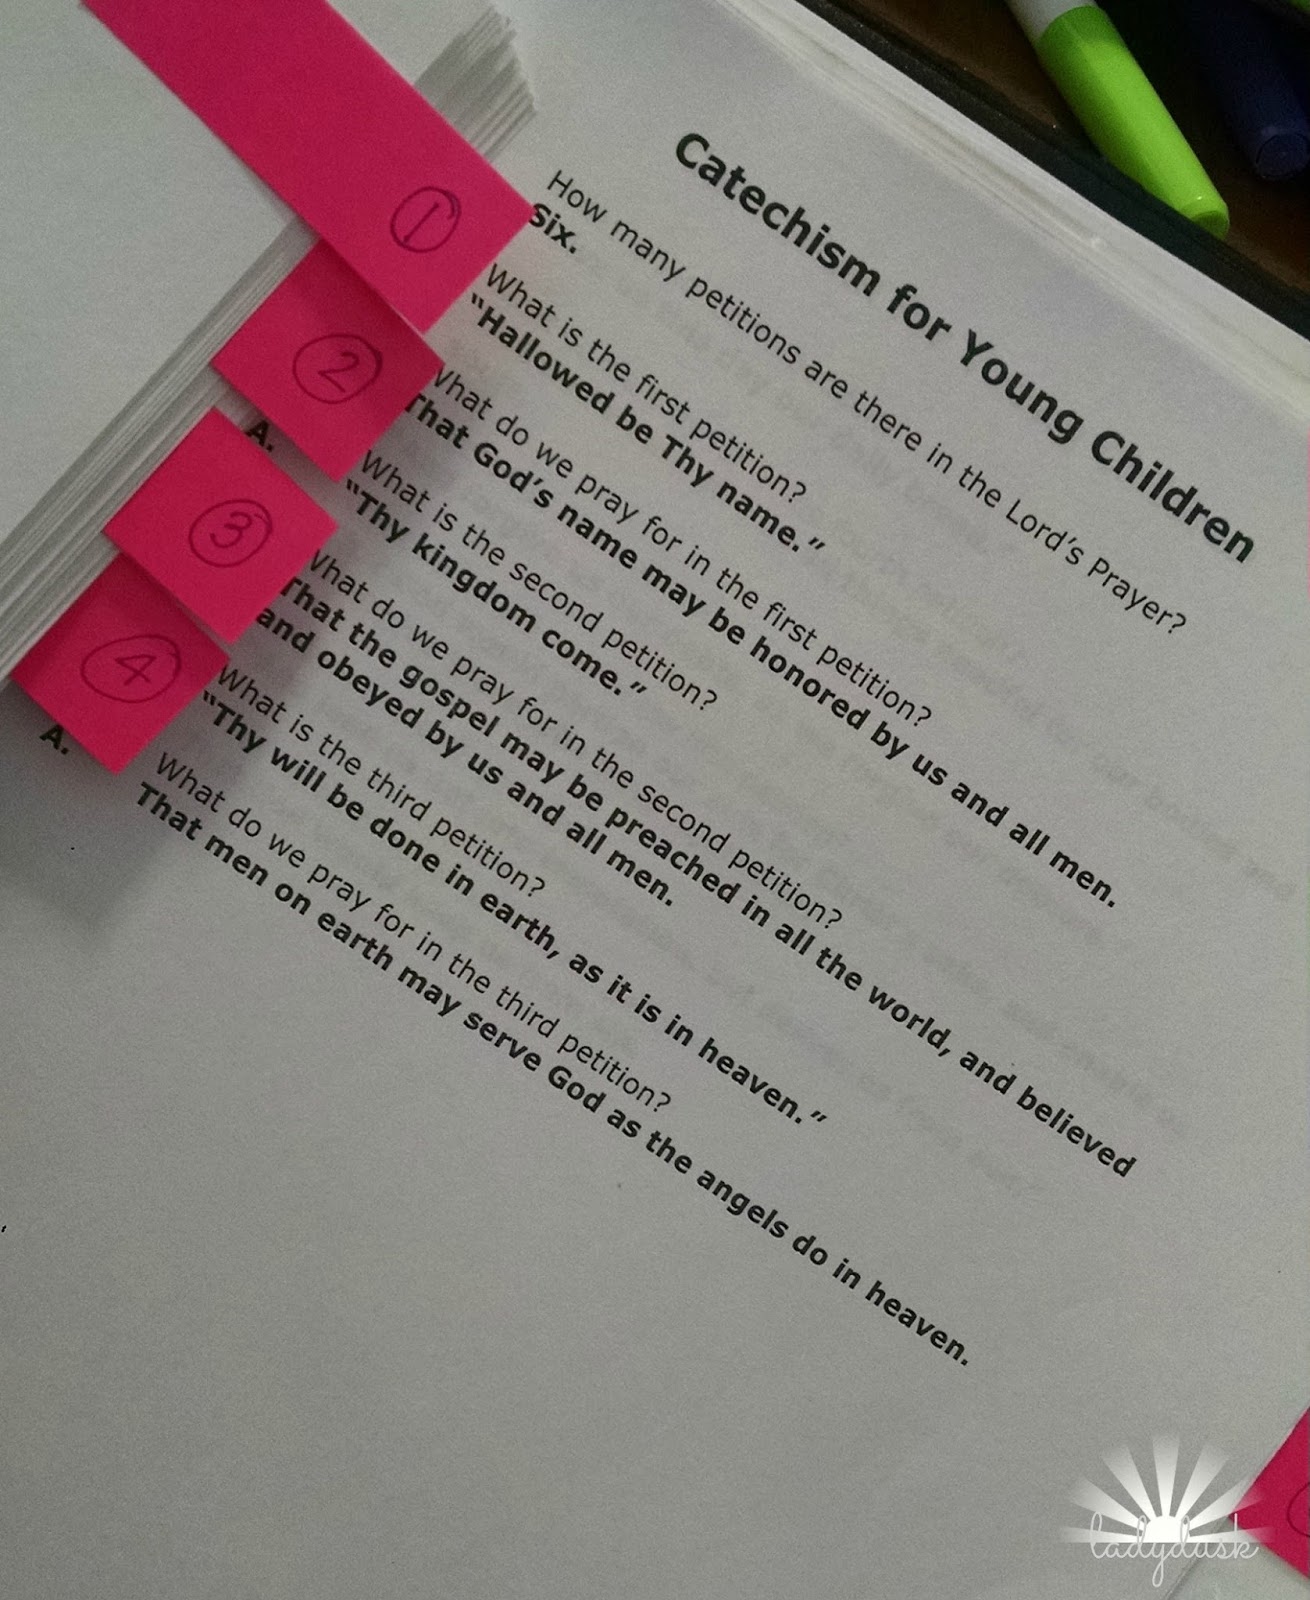 Catechism for Young Children
How many petitions are there in the Lord's Prayer?
Six.
What is the first petition?
"Hallowed be Thy name."
What do we pray for in the first petition?
That God's name may be honored by us and all men.
A. What is the second petition?
"Thy kingdom come."
What do we pray for in the second petition?
That the gospel may be preached in all the world, and believed
and obeyed by us and all men.
What is the third petition?
"Thy will be done in earth, as it is in heaven."
What do we pray for in the third petition?
A. That men on earth may serve God as the angels do in heaven.
1
2
3
4
ladydusk